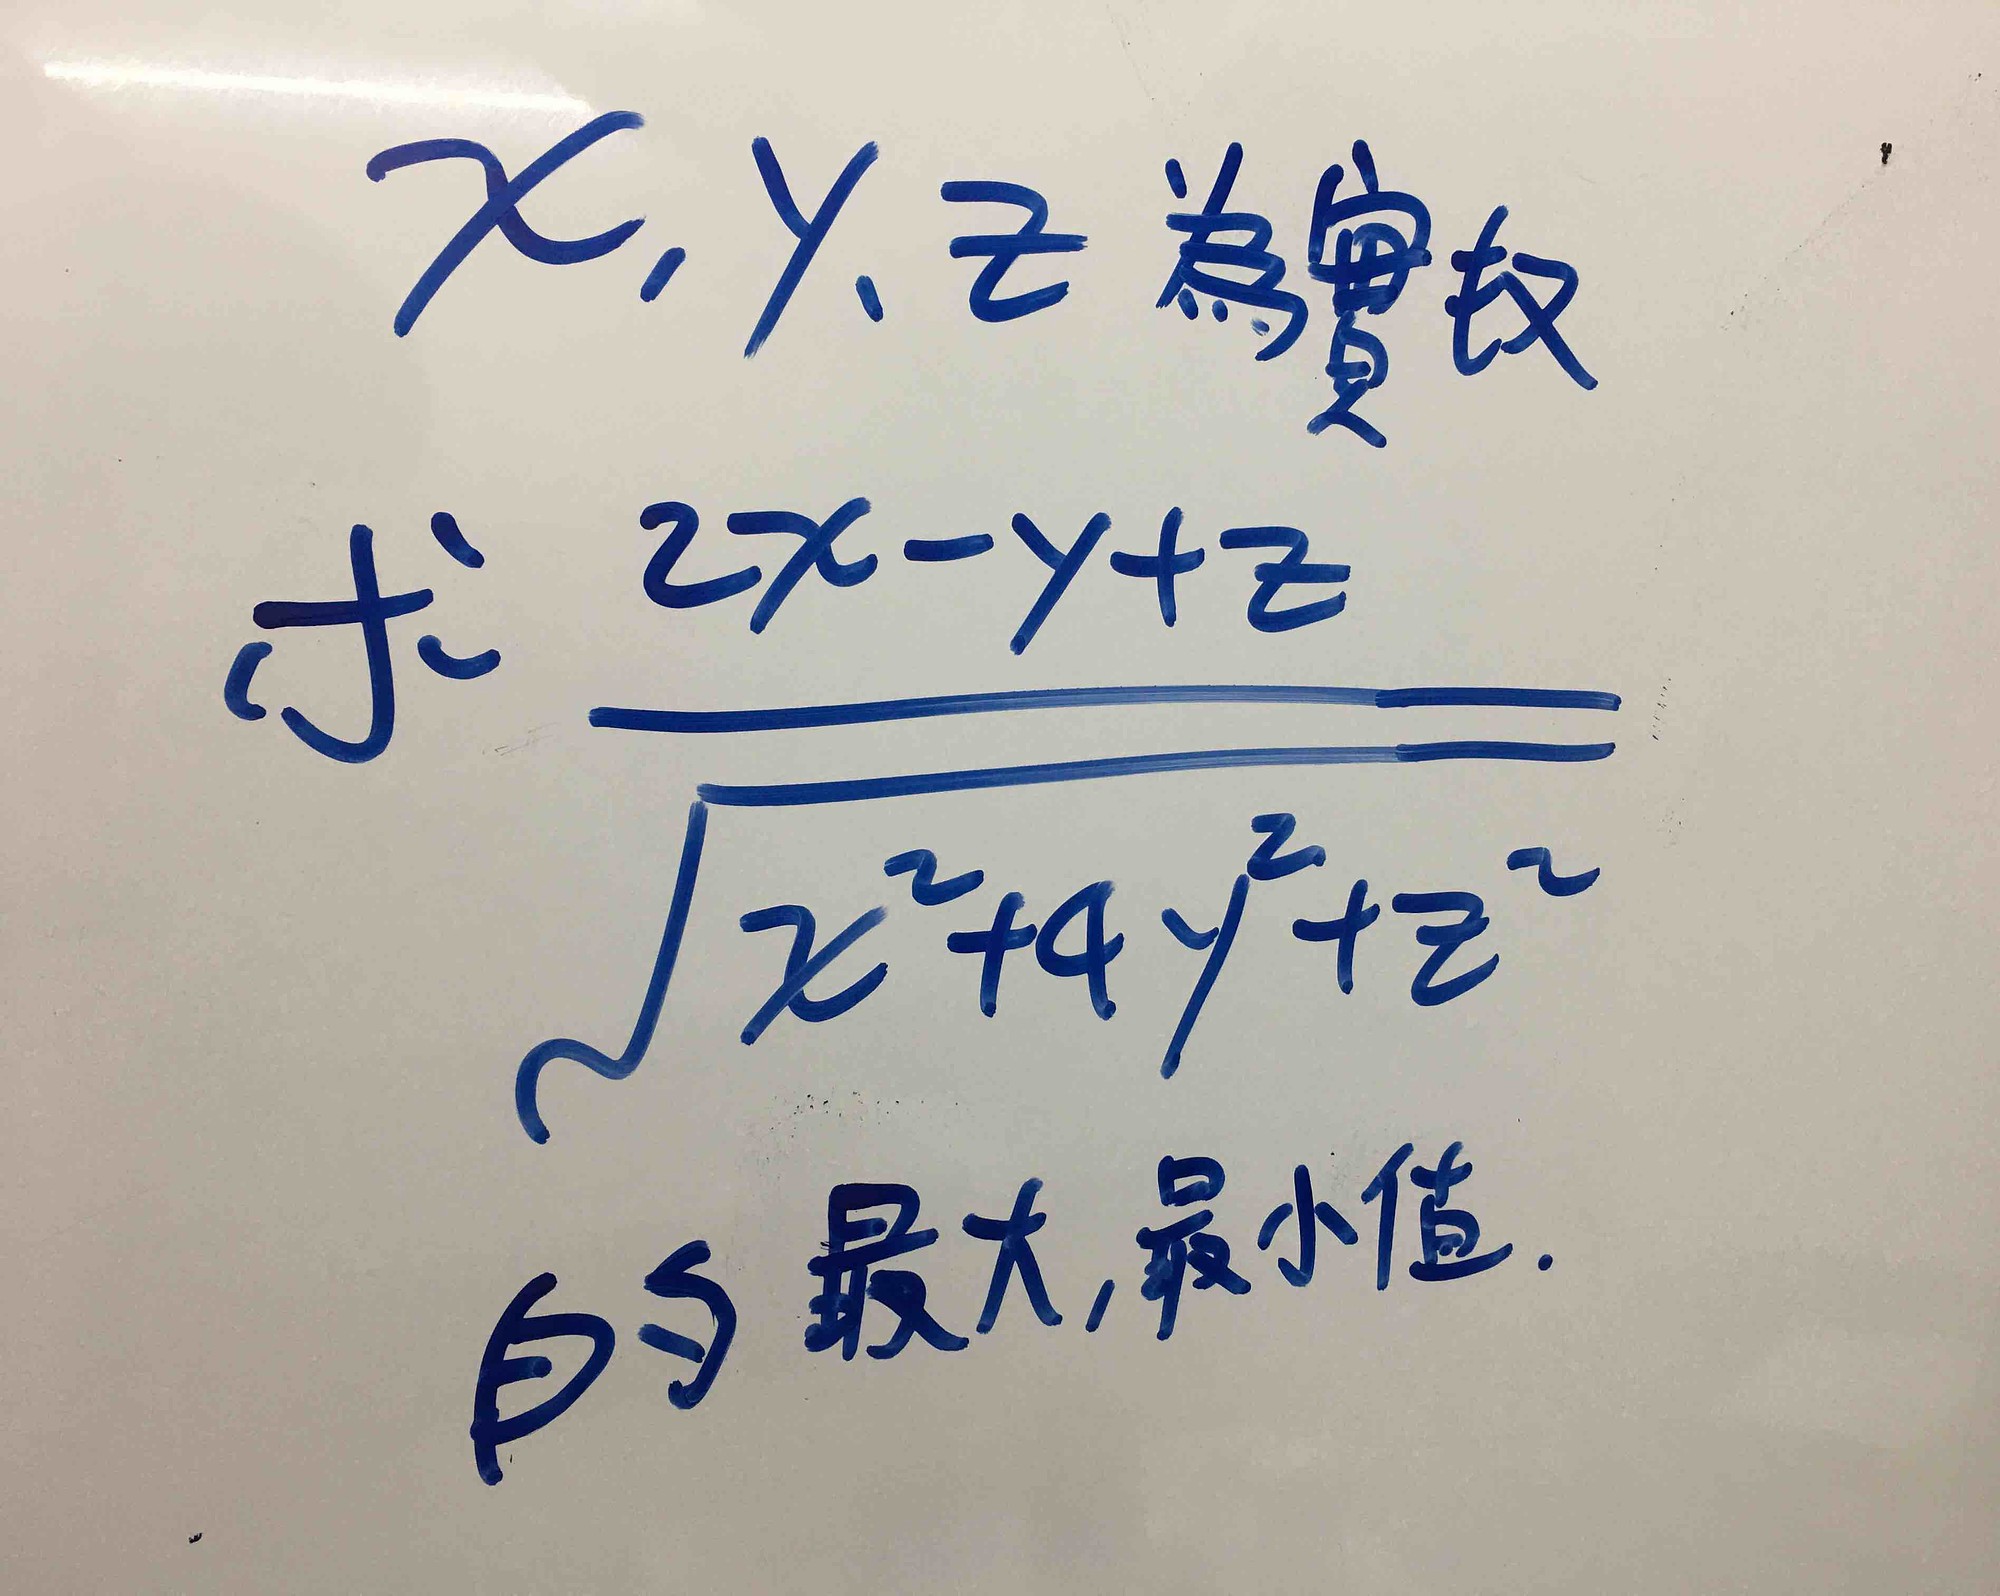 x, y, z 為實数
求 2x-y+z
√x²+4y²+z²
的最大,最小值.